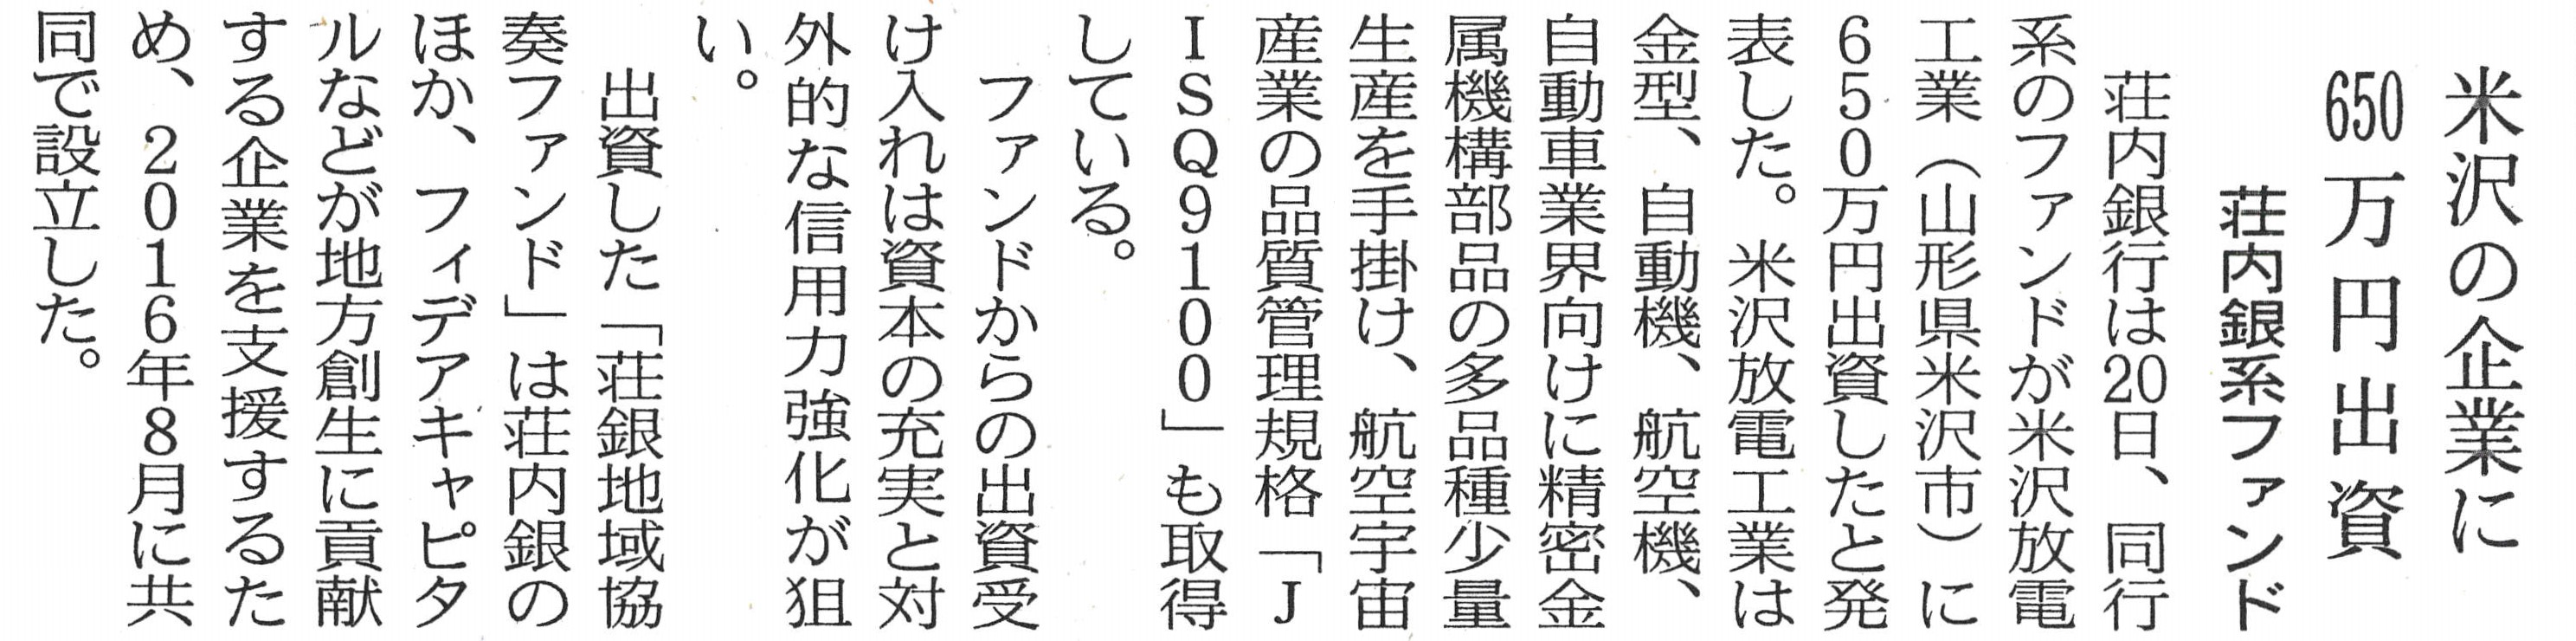 米沢の企業に
650万円出資
荘内銀系ファンド
荘内銀行は20日、同行
系のファンドが米沢放電
工業（山形県米沢市）に
650万円出資したと発
表した。米沢放電工業は
金型、自動機、航空機、
自動車業界向けに精密金
属機構部品の多品種少量
生産を手掛け、航空宇宙
産業の品質管理規格「J
ISQ9100」も取得
している。
ファンドからの出資受
け入れは資本の充実と対
外的な信用力強化が狙
い。
出資した「荘銀地域協
奏ファンド」は荘内銀の
ほか、フィデアキャピタ
ルなどが地方創生に貢献
する企業を支援するた
め、2016年8月に共
同で設立した。